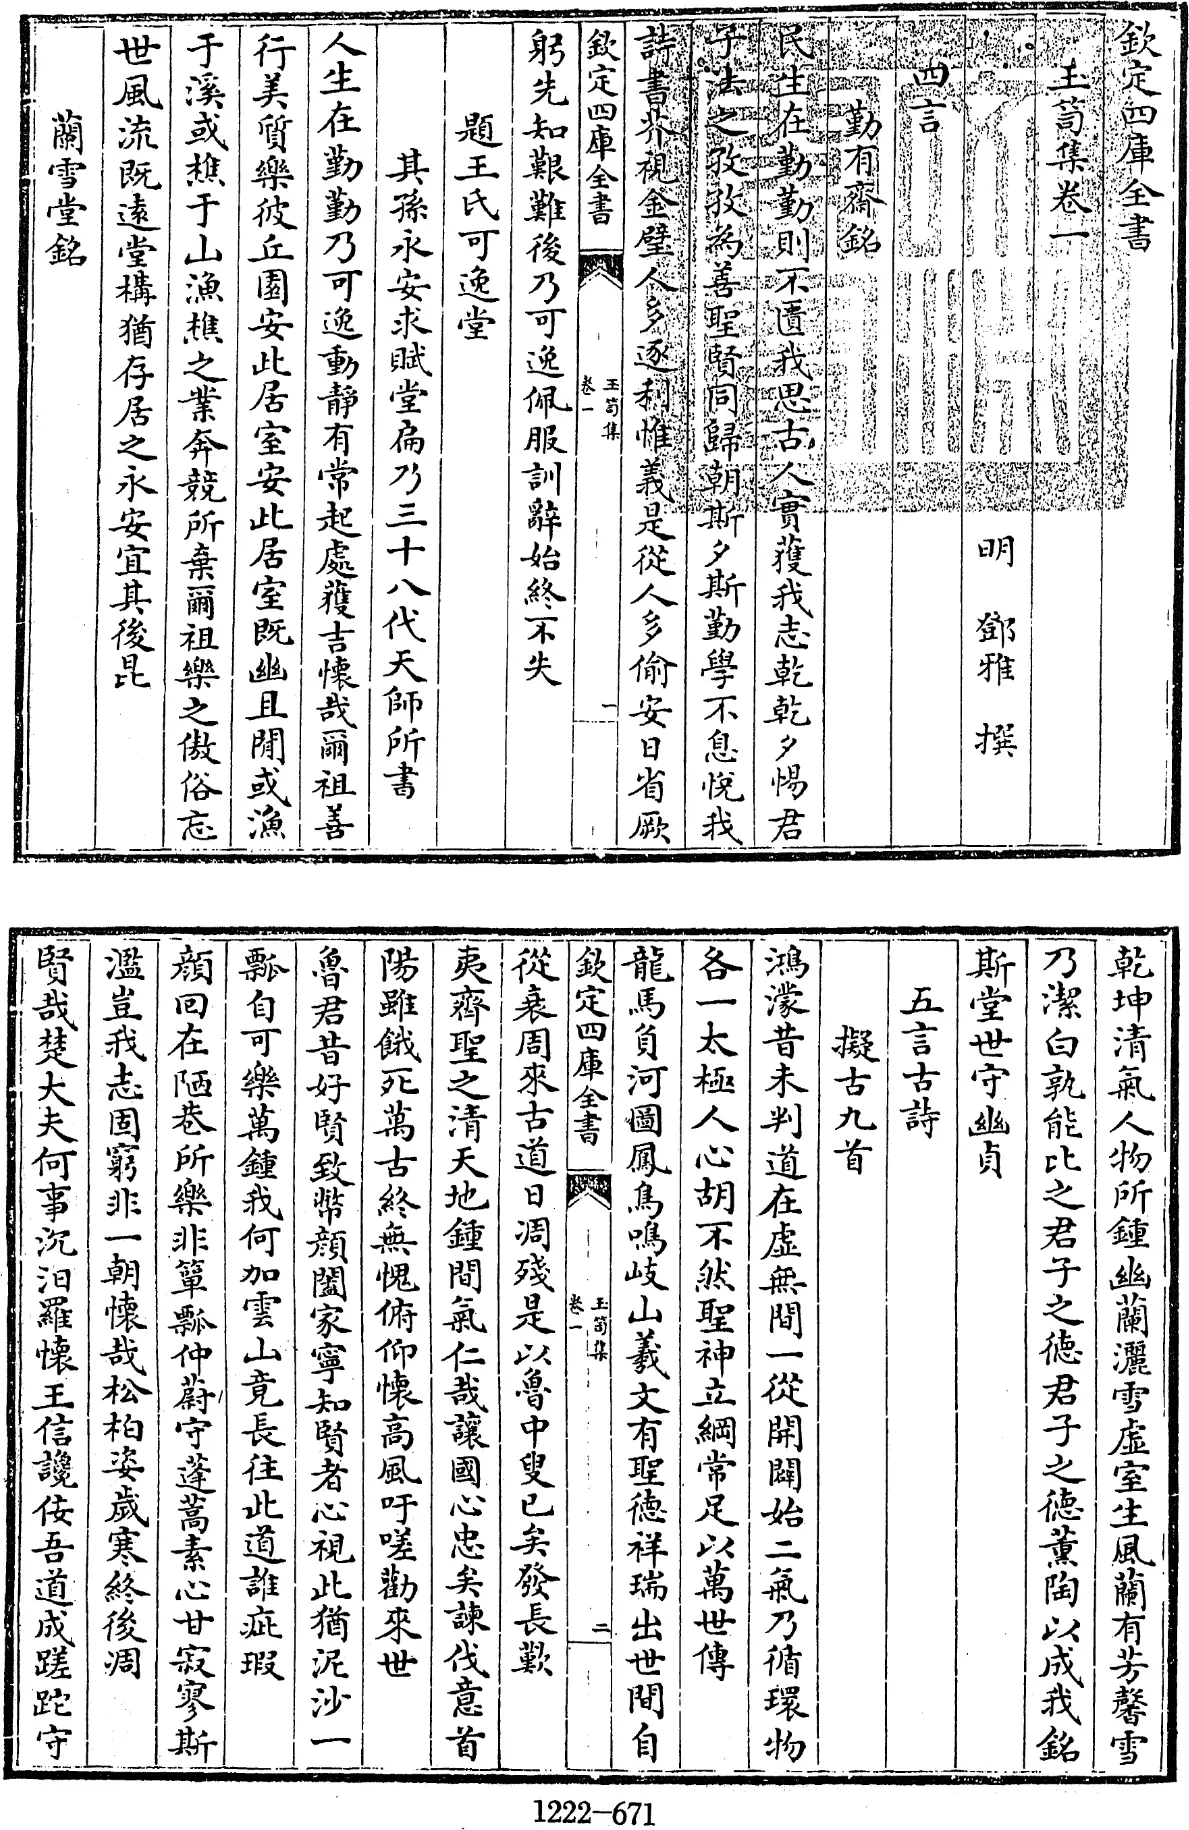 欽定四庫全書
玉笥集卷一
明 鄧雅 撰
四言
勤有齋銘
民生在勤勤則不匱我思古人實獲我志乾乾夕惕君
子法之孜孜為善聖賢同歸朝斯夕斯勤學不息悅我
詩書芥視金璧人多逐利惟義是從人多偷安日省厥
欽定四庫全書
玉笥集
卷一
一
躬先知艱難後乃可逸佩服訓辭始終不失
題王氏可逸堂
其孫永安求賦堂扁乃三十八代天師所書
人生在勤勤乃可逸動靜有常起處獲吉懷哉爾祖善
行美質樂彼丘園安此居室安此居室既幽且閒或漁
于溪或樵于山漁樵之業奔競所棄爾祖樂之傲俗忘
世風流既遠堂構猶存居之永安宜其後昆
蘭雪堂銘
乾坤清氣人物所鍾幽蘭灑雪虛室生風蘭有芳馨雪
乃潔白孰能比之君子之德君子之德薰陶以成我銘
斯堂世守幽貞
五言古詩
擬古九首
鴻濛昔未判道在虛無間一從開闢始二氣乃循環物
各一太極人心胡不然聖神立綱常足以萬世傳
龍馬負河圖鳳鳥鳴岐山羲文有聖德祥瑞出世間自
欽定四庫全書
玉笥集
卷一
二
從衰周來古道日凋殘是以魯中叟已矣發長歎
夷齊聖之清天地鍾間氣仁哉讓國心忠矣諫伐意首
陽雖餓死萬古終無愧俯仰懷高風吁嗟勸來世
魯君昔好賢致幣顏闔家寧知賢者心視此猶泥沙一
瓢自可樂萬鍾我何加雲山竟長往此道誰疵瑕
顏回在陋巷所樂非簞瓢仲蔚守蓬蒿素心甘寂寥斯
濫豈我志固窮非一朝懷哉松柏姿歲寒終後凋
賢哉楚大夫何事沉汨羅懷王信讒佞吾道成蹉跎守
1222-671